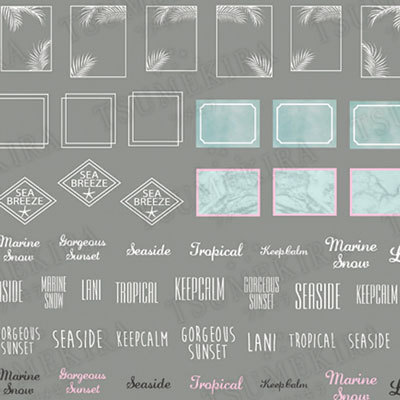 SEA
BREEZE
SEA
BREEZE
SEA
BREEZE
Marine
Snow
Gorgeous
Sunset
Seaside
Tropical
Keep calm
Marine
Snow
MARINE
SNOW
LANI
TROPICAL
KEEPCALM
GORGEOUS
SUNSET
SEASIDE
KEEPCALM
GORGEOUS
SUNSET
SEASIDE
KEEPCALM
GORGEOUS
SUNSET
LANI
TROPICAL
SEASIDE
Marine
Snow
Gorgeous
Sunset
Seaside
Tropical
Keep calm
Marine
Snow
TSUMEKIRA